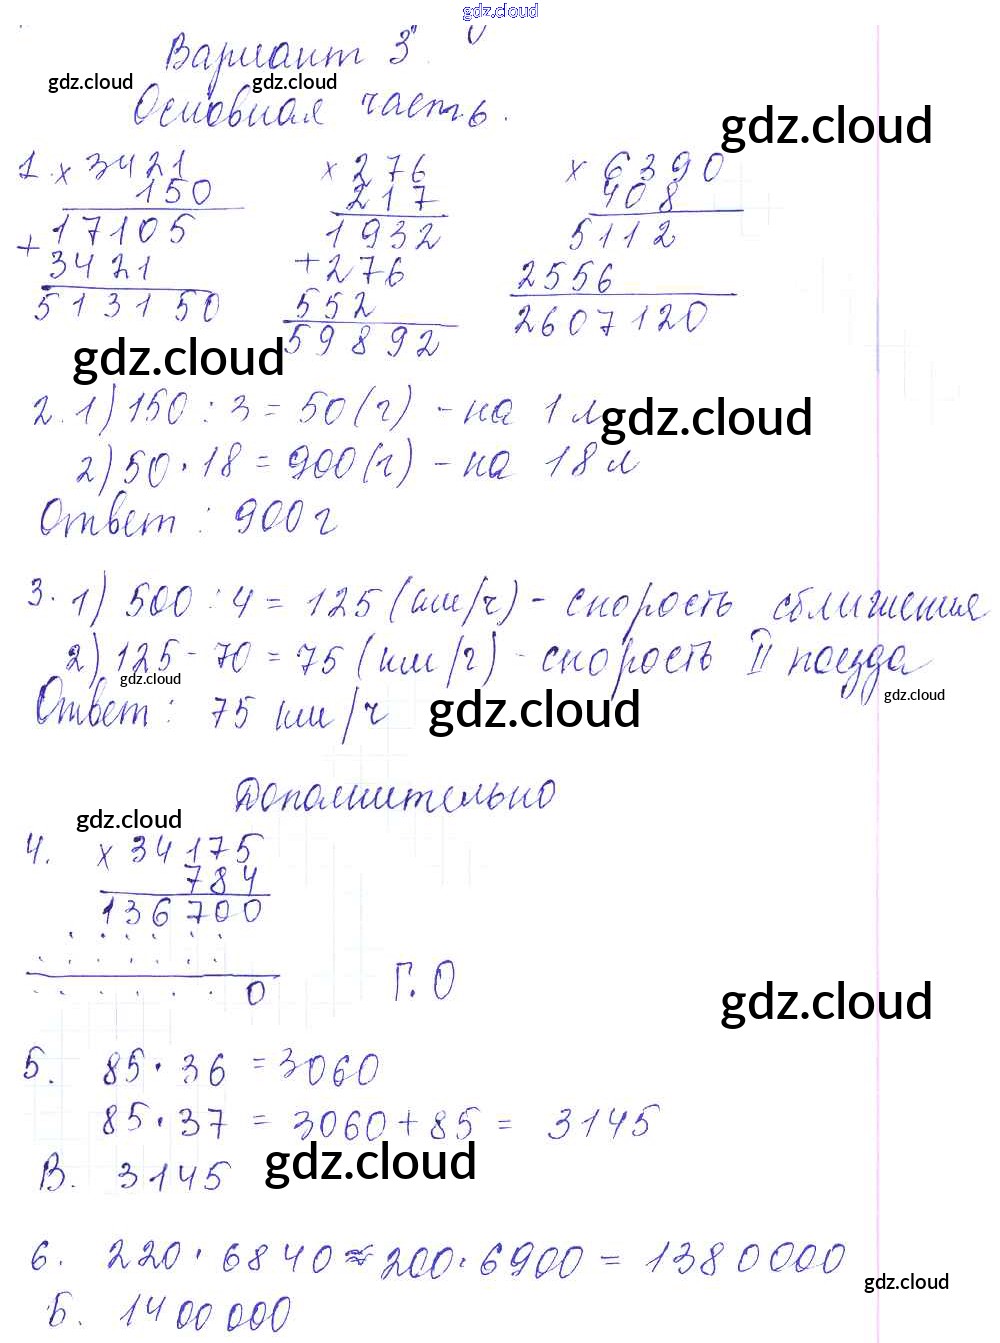 gdz.cloud
Вариант 3.
gdz.cloud gdz.cloud
Основная часть.
gdz.cloud
1. × 3421 × 276 × 6390
150 217 408
17105 1932 5112
+ 3421 + 276 2556
513150 552 2607120
59892
gdz.cloud
2. 1) 150 : 3 = 50 (г) - на 1 л
gdz.cloud
2) 50 · 18 = 900 (г) - на 18 л
Ответ : 900 г
3. 1) 500 : 4 = 125 (км/ч) - скорость сближения
2) 125 - 70 = 75 (км/ч) - скорость II поезда
gdz.cloud gdz.cloud
Ответ : 75 км/ч
gdz.cloud
Дополнительно
gdz.cloud
4. × 34175
784
136700
. . . . . .
. . . . . .
. . . . . . 0 Г. 0
gdz.cloud
5. 85 · 36 = 3060
85 · 37 = 3060 + 85 = 3145
В. 3145
gdz.cloud
6. 220 · 6840 ≈ 200 · 6900 = 1380000
gdz.cloud
Б. 1400000